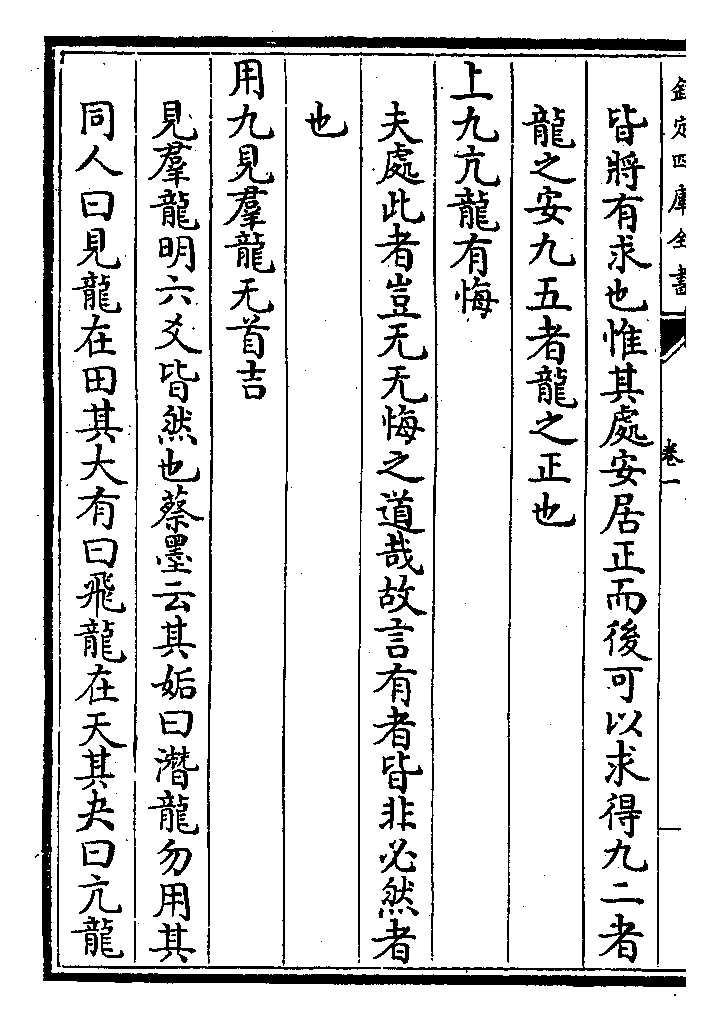 欽定四庫全書
卷一
皆將有求也惟其處安居正而後可以求得九二者
龍之安九五者龍之正也
上九亢龍有悔
夫處此者豈无无悔之道哉故言有者皆非必然者
也
用九見羣龍无首吉
見羣龍明六爻皆然也蔡墨云其姤曰潛龍勿用其
同人曰見龍在田其大有曰飛龍在天其夬曰亢龍